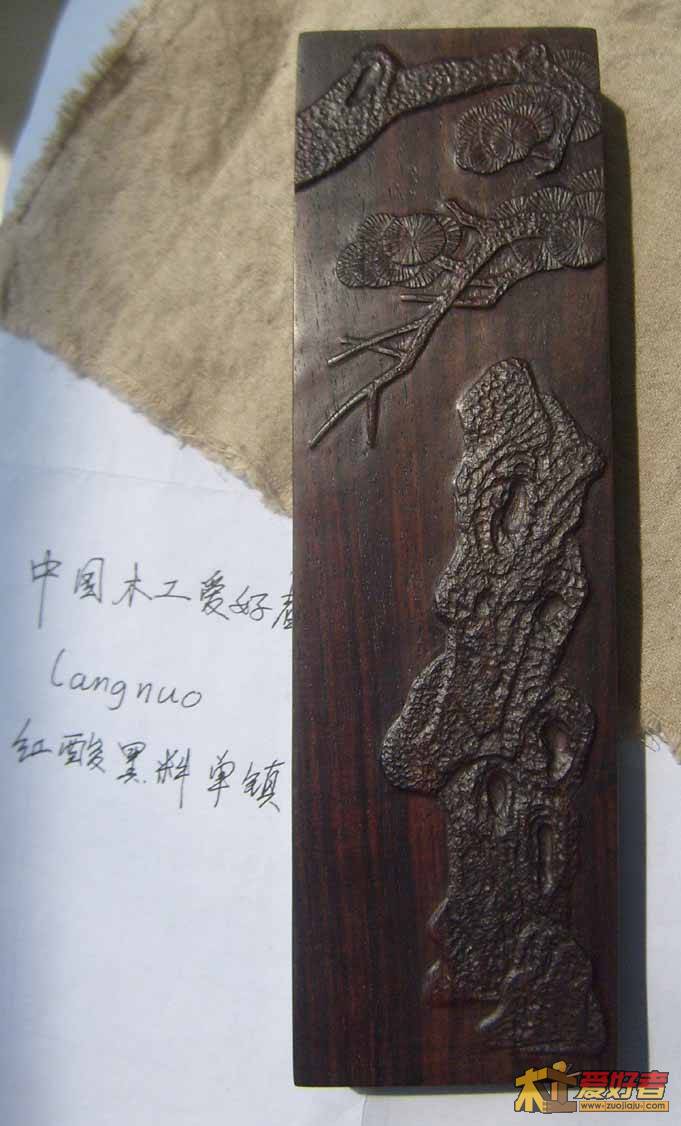 中国木工爱好者
langnuo
红酸黑料单镇
木工爱好者
www.zuojiaju.com